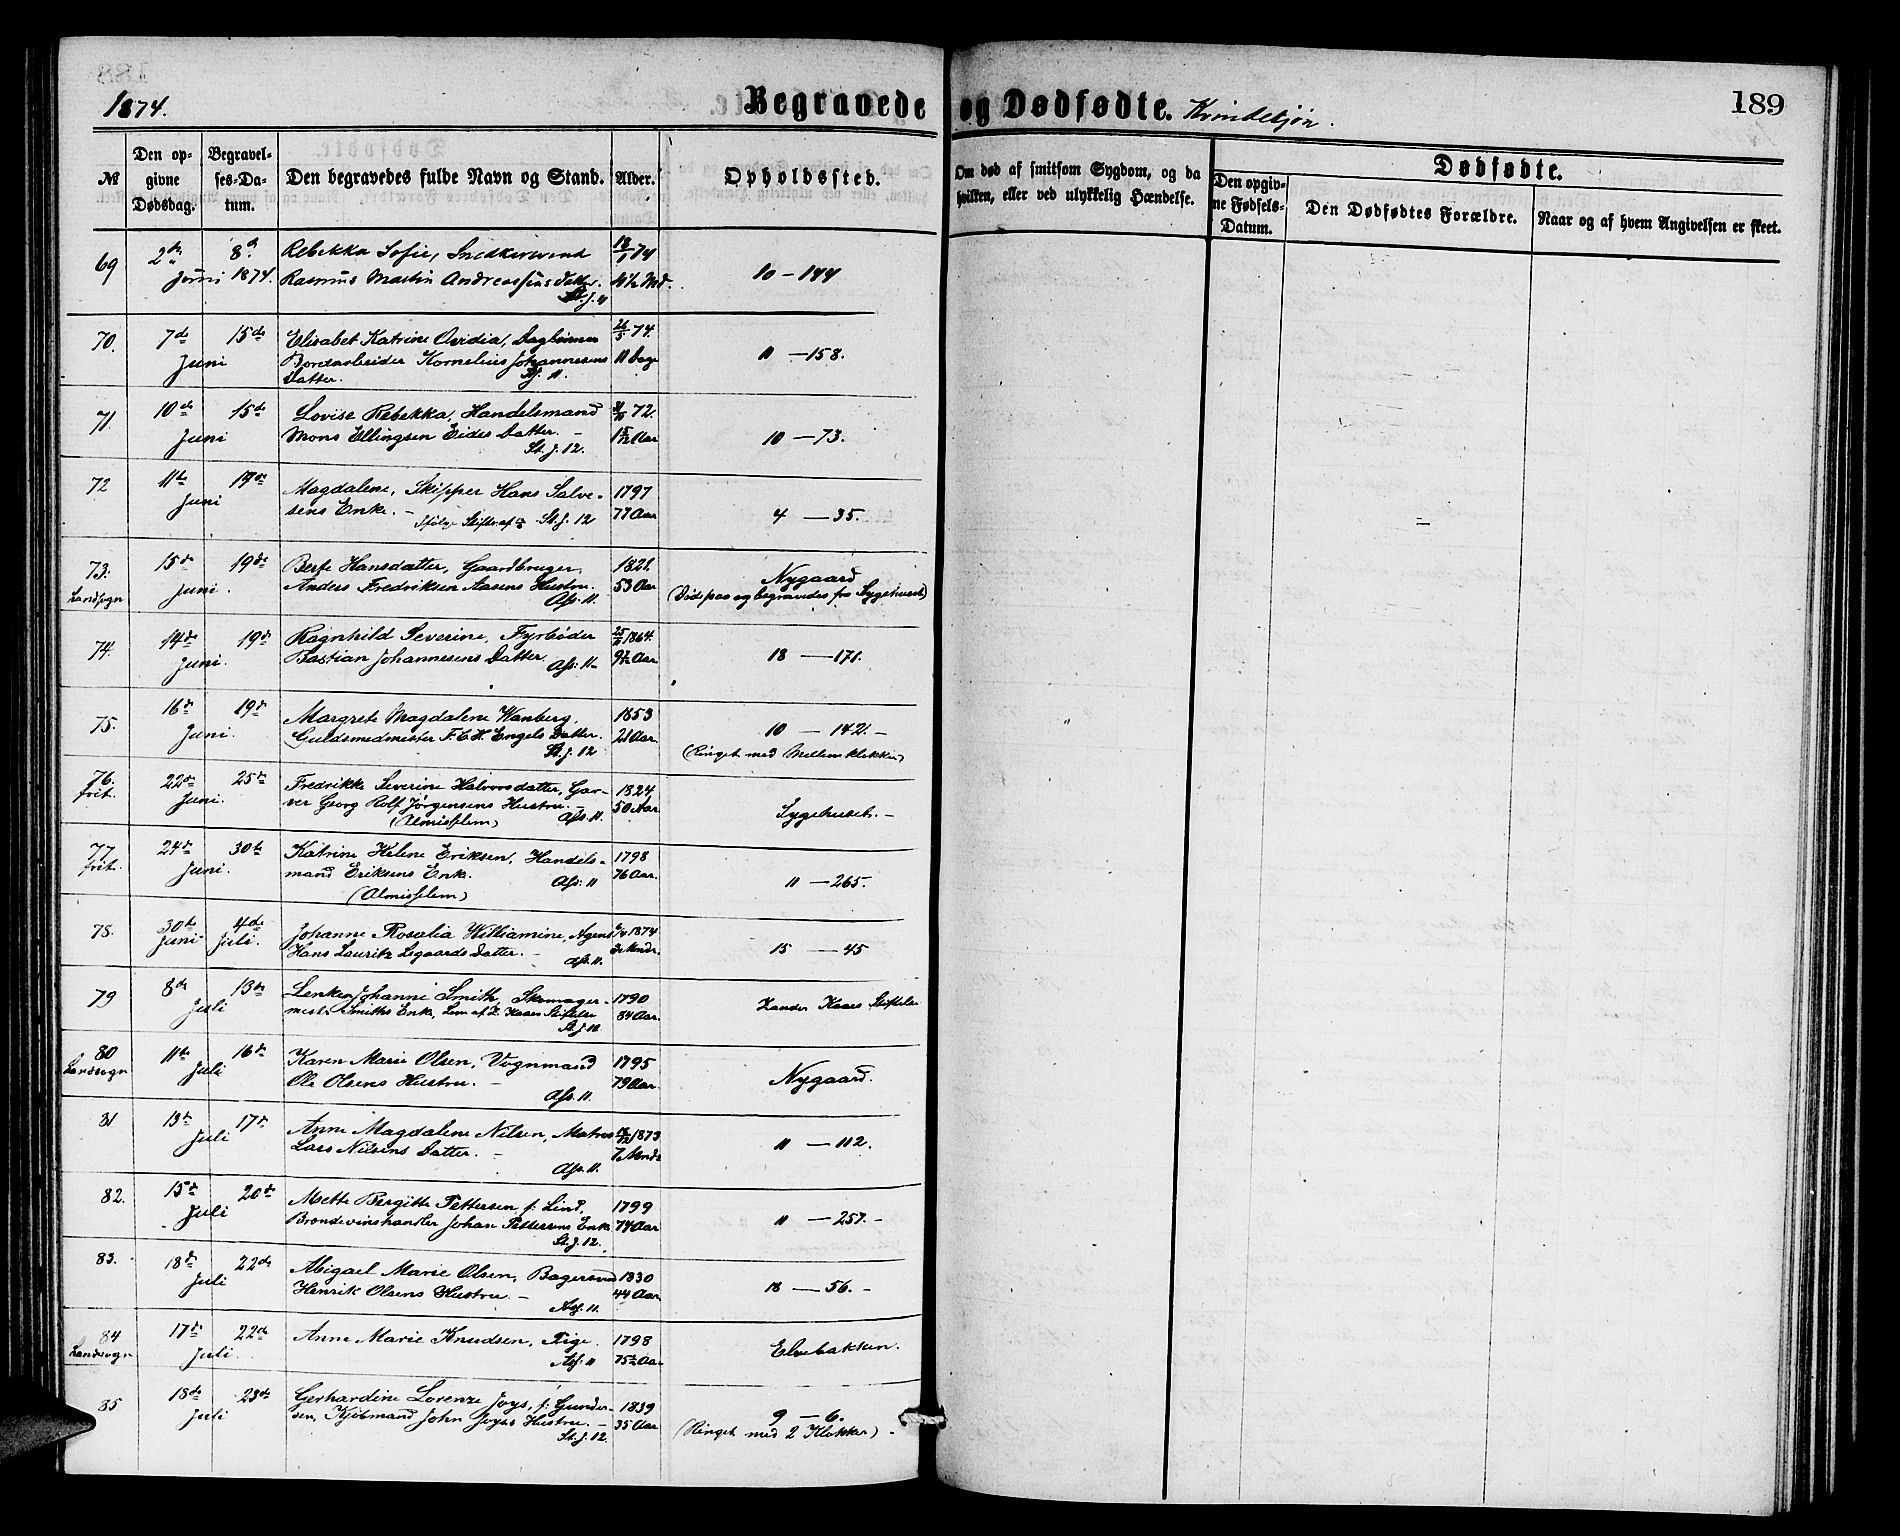 1874. Begravede og Dødfødte. Kvindekjøn. 189
№ Den opgivne Dødsdag. Begravelses-Datum. Den begravedes fulde Navn og Stand. Alder. Opholdssted. Om død af smitsom Sygdom, og da hvilken, eller ved ulykkelig Hændelse. Dødfødte. Den opgivne Fødsels-Datum. Den Dødfødtes Forældre. Naar og af hvem Angivelsen er skeet.
69 2den 8de Rebekka Sofie, Snedkersvend 18/1 74
Juni 1874. Rasmus Martin Andreassens Datter. 4½ Md. 10 – 144
St. J. 11
70. 7de 15de Elisabet Katrine Ovidia, Dagleinner 26/5 74.
Juni Bordarbeider Kornelius Johannesens 11 Dage 11 – 158.
Datter. Asf. 11.
71. 10de 15de Lovise Rebekka, Handelsmand 72.
Juni Mons Ellingsen Eides Datter. – 1 5/12 Aar 10 – 73.
St. J. 12.
72 11te 19de Magdalene, Skipper Hans Salve- 1797
Juni sens Enke. – St. J. 12 77 Aar 4 – 35.
73. 15de 19de Berte Hansdatter, Gaardbruger 1821. Nygaard
Landsogn Juni. Anders Fredriksen Aasens Hustru. 53 Aar (Død paa og begravedes fra Sygehuset)
Asf. 11.
74. 14de 19de Ragnhild Severine, Fyrbøder 25/11 1864.
Juni. Bastian Johannesens Datter. Asf. 11. 9½ Aar. 18 – 171.
75. 16de 19de Margrete Magdalene Wanberg, 1853 10 – 142. –
Juni. Guldsmedmester F. C. H. Engels Datter. 21 Aar. (Ringet med Mellemklokken)
St. J. 12
76. 22de 25de Fredrikke Severine Halvorsdatter, Gar- 1824.
frit. Juni. ver Georg Rolf Jørgensens Hustru. – 50 Aar Sygehuset. –
(Almisselem) Asf. 11.
77 24de 30te Katrine Helene Eriksen, Handels- 1798
frit. Juni. mand Eriksens Enke. Asf. 11 76 Aar. 11 – 265.
(Almisselem)
78. 30te 4de Johanne Rosalia Williamine, Agent 1874
Juni Juli. Hans Lauritz Legaards Datter. – Asf. 11. 15 – 45
79 8de 13de Lenken Johanne Smith, Skomager- 1790 Zander Kaaes Stiftelse
Juli mester Smiths Enke, Lem af Z. Kaaes Stiftelse 84 Aar.
80 11te 16de Karen Marie Olsen, Vognmand 1795
Landsogn Juli Ole Olsens Hustru. – 79 Aar. Nygaard.
Asf. 11.
81 13de 17de Anne Magdalene Nilsen, Matros 1873
Juli Lars Nilsens Datter. – 7 Mndr 11 – 112.
Asf. 11.
82. 15de 20de Mette Bergitte Pettersen f: Lind, 1799
Juli Brændevinshandler Johan Pettersens Enke 74 Aar 11 – 257. –
St. J. 12.
83. 18de 22de Abigael Marie Olsen, Bagersvend 1830
Juli Henrik Olsens Hustru. – 44 Aar 18 – 56. –
Asf. 11.
84 17de 22de Anne Marie Knudsen, Pige. 1798 Elvebakken.
Landsogn Juli. Asf. 11 75½ Aar
85 18de 23de Gerhardine Lorenze Joys, f: Gunder- 1839 9 – 6.
Juli sen, Kjøbmand John Joyss Hustru. – 35 Aar (Ringet med 2 Klokker) –
St. J. 12.